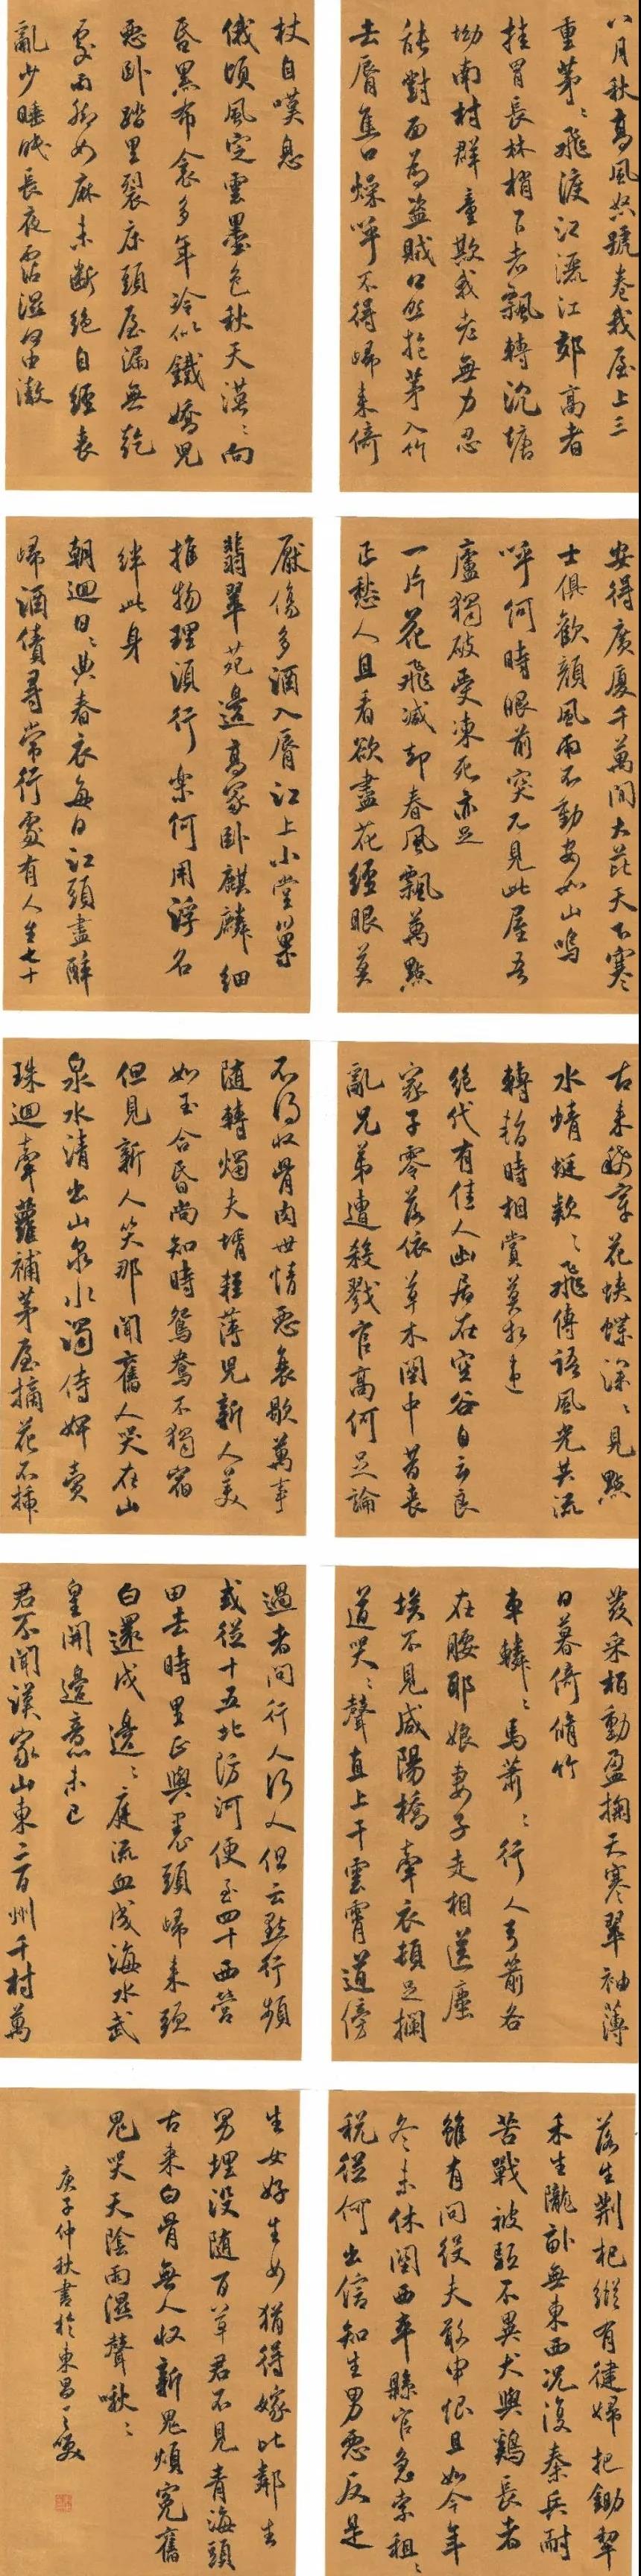 八月秋高風怒號卷我屋上三
重茅茅飛渡江灑江郊高者
挂罥長林梢下者飄轉沉塘
坳南村群童欺我老無力忍
能對面為盜賊公然抱茅入竹
去脣焦口燥呼不得歸來倚
杖自嘆息
俄頃風定雲墨色秋天漠漠向
昏黑布衾多年冷似鐵嬌兒
惡臥踏里裂床頭屋漏無乾
處雨腳如麻未斷絕自經喪
亂少睡眠長夜霑濕何由徹
安得廣廈千萬間大芘天下寒
士俱歡顏風雨不動安如山嗚
呼何時眼前突兀見此屋吾
廬獨破受凍死亦足
一片花飛減却春風飄萬點
正愁人且看欲盡花經眼莫
厭傷多酒入脣江上小堂巢
翡翠苑邊高冢臥麒麟細
推物理須行樂何用浮名
絆此身
朝迴日日典春衣每日江頭盡醉
歸酒債尋常行處有人生七十
古來稀穿花蛺蝶深深見點
水蜻蜓款款飛傳語風光共流
轉暫時相賞莫相違
絕代有佳人幽居在空谷自云良
家子零落依草木關中昔喪
亂兄弟遭殺戮官高何足論
不得收骨肉世情惡衰歇萬事
隨轉燭夫壻輕薄兒新人美
如玉合昏尚知時鴛鴦不獨宿
但見新人笑那聞舊人哭在山
泉水清出山泉水濁侍婢賣
珠迴牽蘿補茅屋摘花不插
髮采柏動盈掬天寒翠袖薄
日暮倚脩竹
車轔轔馬蕭蕭行人弓箭各
在腰耶娘妻子走相送塵
埃不見咸陽橋牽衣頓足攔
道哭哭聲直上干雲霄道傍
過者問行人行人但云點行頻
或從十五北防河便至四十西營
田去時里正與裹頭歸來頭
白還戍邊邊庭流血成海水武
皇開邊意未已
君不聞漢家山東二百州千村萬
落生荊杞縱有健婦把鋤犂
禾生隴畝無東西況復秦兵耐
苦戰被驅不異犬與鷄長者
雖有問役夫敢申恨且如今年
冬未休關西卒縣官急索租租
稅從何出信知生男惡反是
生女好生女猶得嫁比鄰生
男埋沒隨百草君不見青海頭
古來白骨無人收新鬼煩冤舊
鬼哭天陰雨濕聲啾啾
庚子仲秋書於東昌